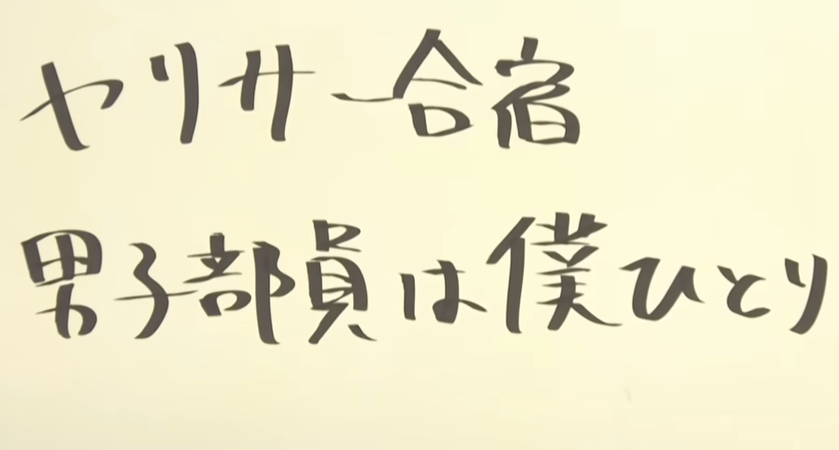 ヤリサー合宿
男子部員は僕ひとり